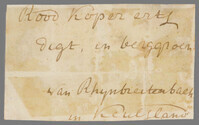 Rood Koper erts
digt, in berggroen
van Rhynbreitenbach
in Keulsland